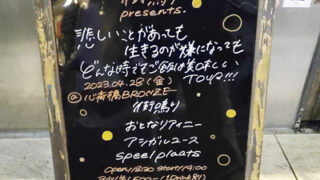 街鳴り
presents.
悲しいことがあっても
生きるのが嫌になっても
どんな時でもご飯は美味しい
TOUR!!!
2023.04.28(金)
@心斎橋BRONZE
街鳴り
おとなりアイニー
アシガルユース
speelplaats
open/18:30 start/19:00